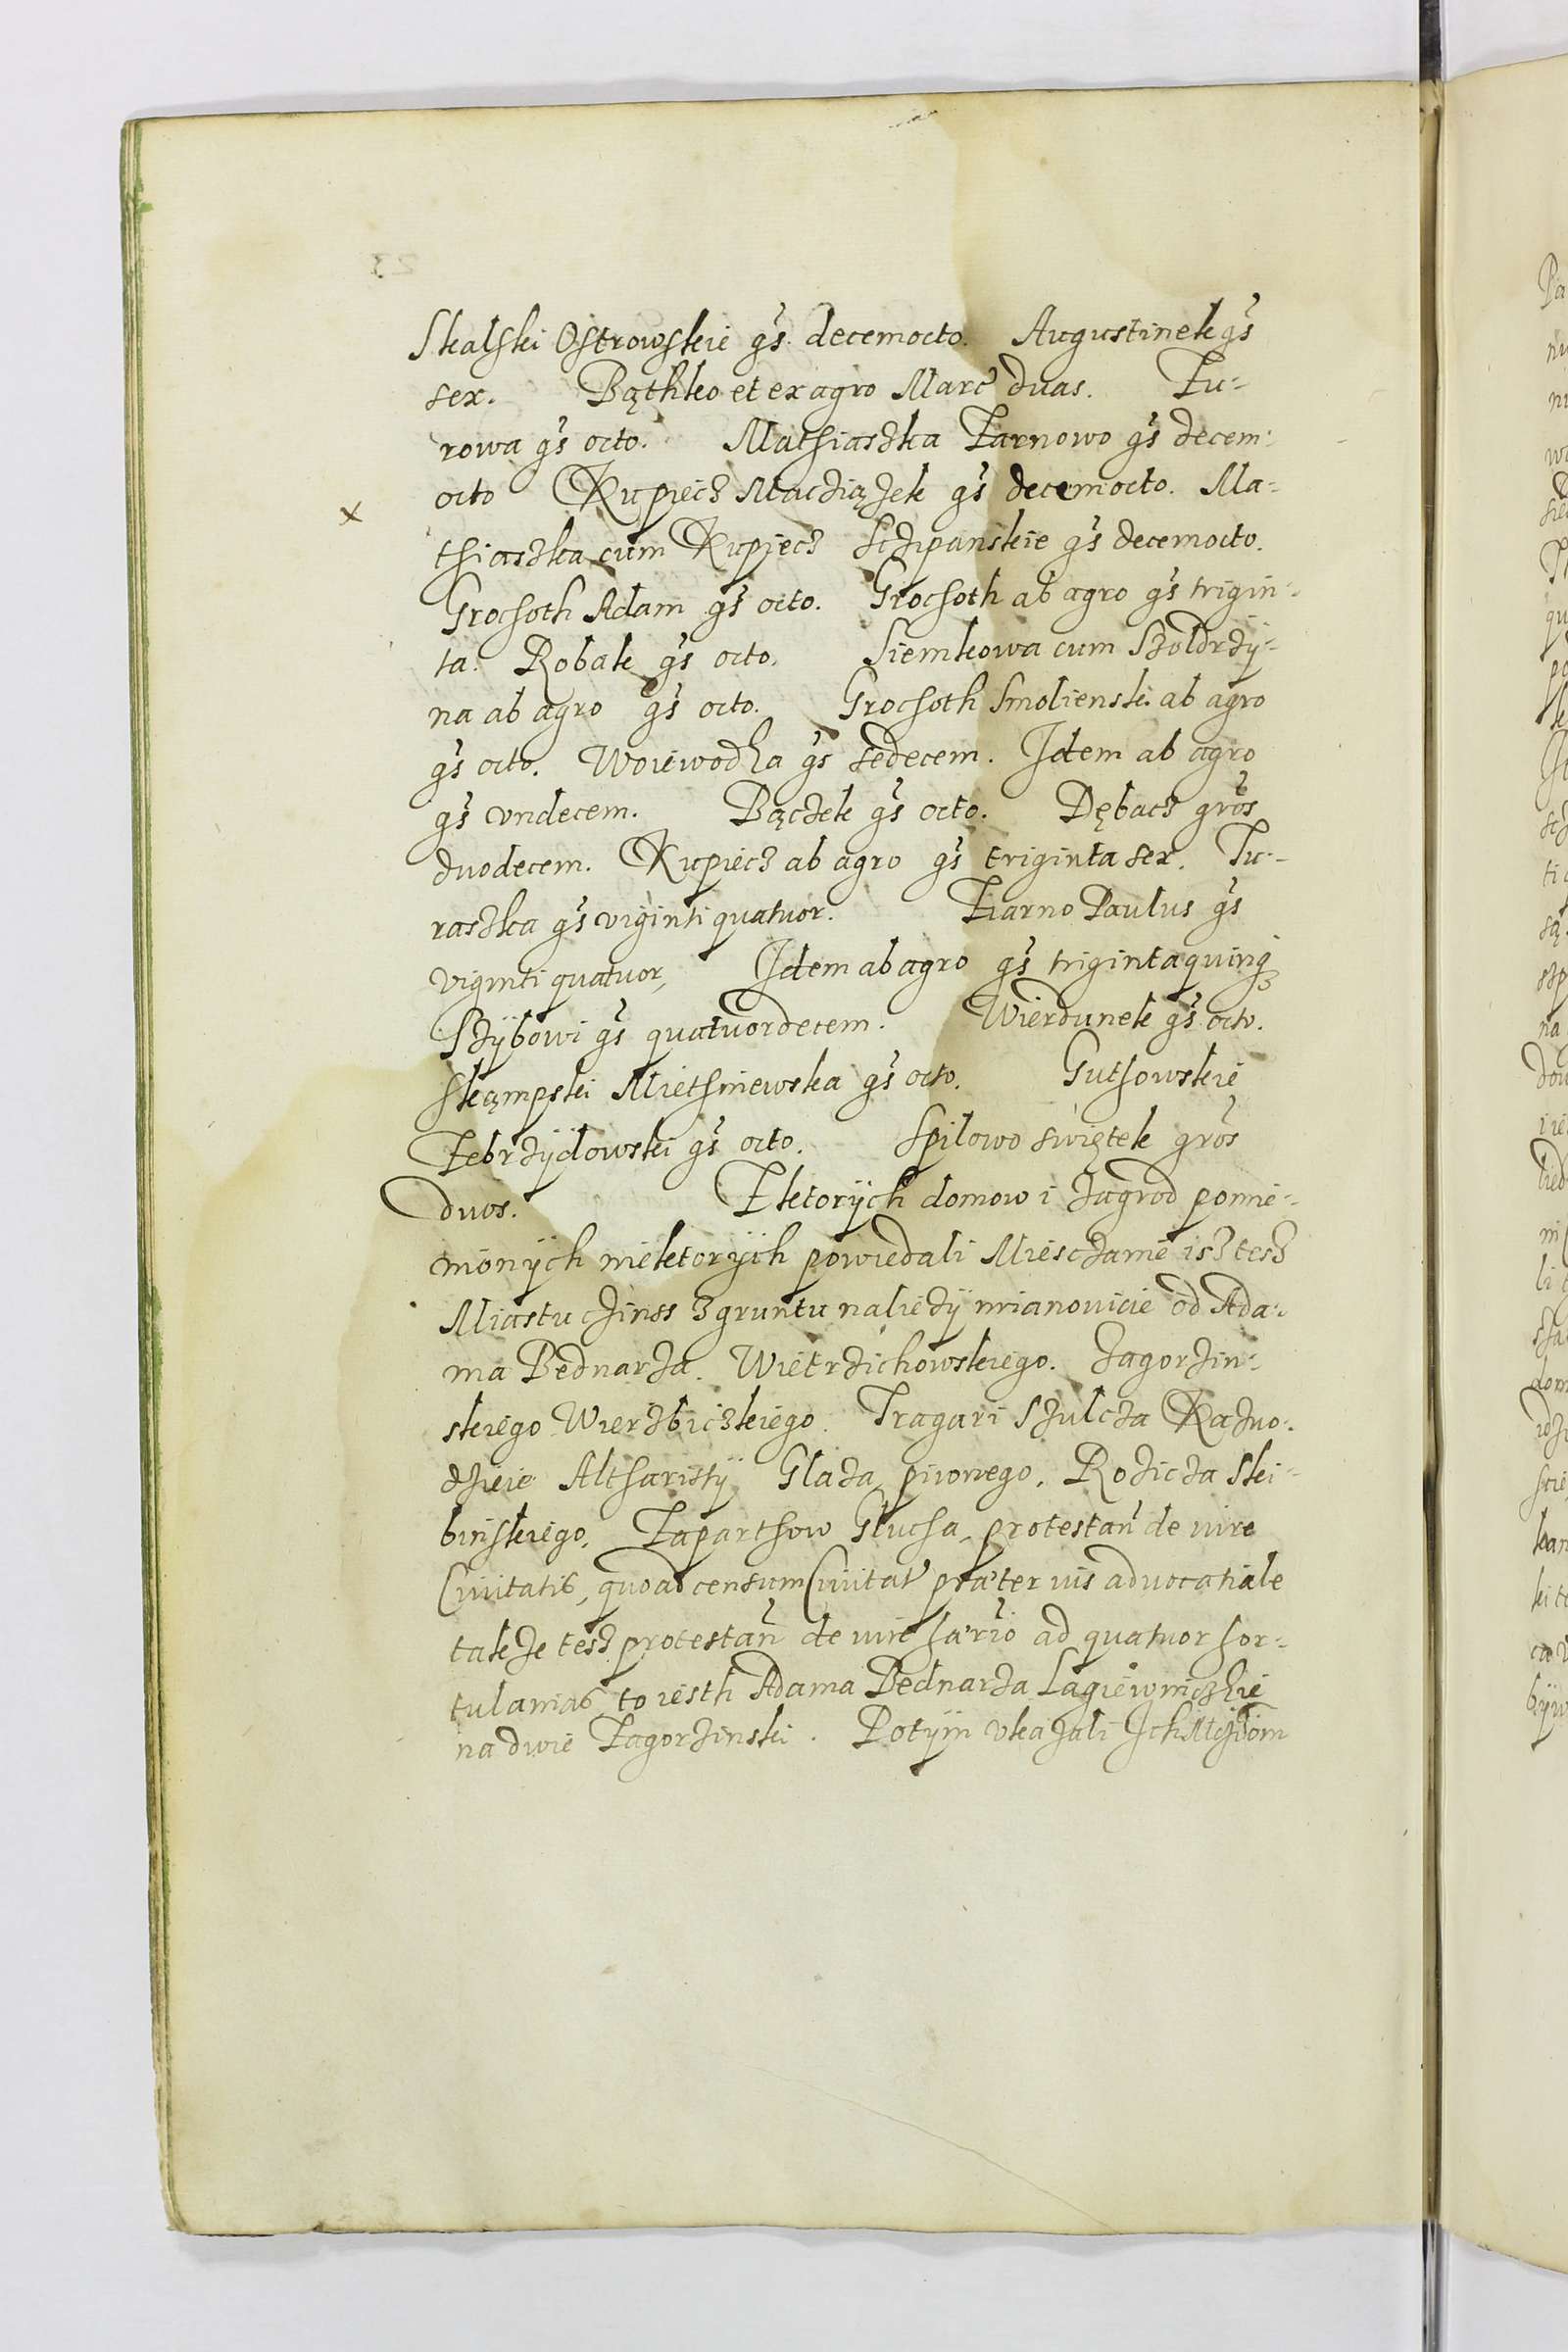 Skalski Ostrowskie gs. decemocto. Augustinek gs
sex. Bąthko et ex agro Marc duas. Zu-
rowa gs octo. Mathiaszka Zarnowo gs decem:
octo Kupiecz Macziązek gs decemocto. Ma-
thiaszka cum Kupiecz Sczipanskie gs decemocto.
Grochoth Adam gs octo. Grochoth ab agro gs trigin-
ta. Robak gs octo. Siemkowa cum Szoldrzÿ-
na ab agro gs octo. Grochoth Smolienski ab agro
gs octo. Woiewodka gs sedecem. Idem ab agro
gs vndecem. Bączek gs octo. Dębacz gros
duodecem. Kupiecz ab agro gs triginta sex. Ju-
raszka gs viginti quatuor. Ziarno Paulus gs
viginti quatuor, Idem ab agro gs triginta quinq
Szÿbowi gs quatuordecem. Wierdunek gs octo.
Skąmpski Miethniewska gs octo. Guthowskie
Zebrzÿdowski gs octo. Spilowo swiętek gros
duos. Zktorÿch domow i zagrod pomie-
mionÿch niektorÿch powiedali Miesczanie isz tesz
Miastu czinss z gruntu naliezÿ mianowicie od Ada-
ma Bednarza. Wietrzichowskiego. Zagorzin-
skiego Wierzbiczkiego. Tragari Szulcza Kazno-
dzieie Altharistÿ Glaza piwnego. Rozicza Ski-
binskiego. Zaparthow Glucha, protestan de iure
Ciuitatis, quoad censum Ciuitat præter ius aduocatiale
takze tesz protestan de iure hærio ad quatuor hor-
tulanias to iesth Adama Bednarza Lagiewniczkie
na dwie Zagorzinski. Potÿm vkazali Ich Mcziom